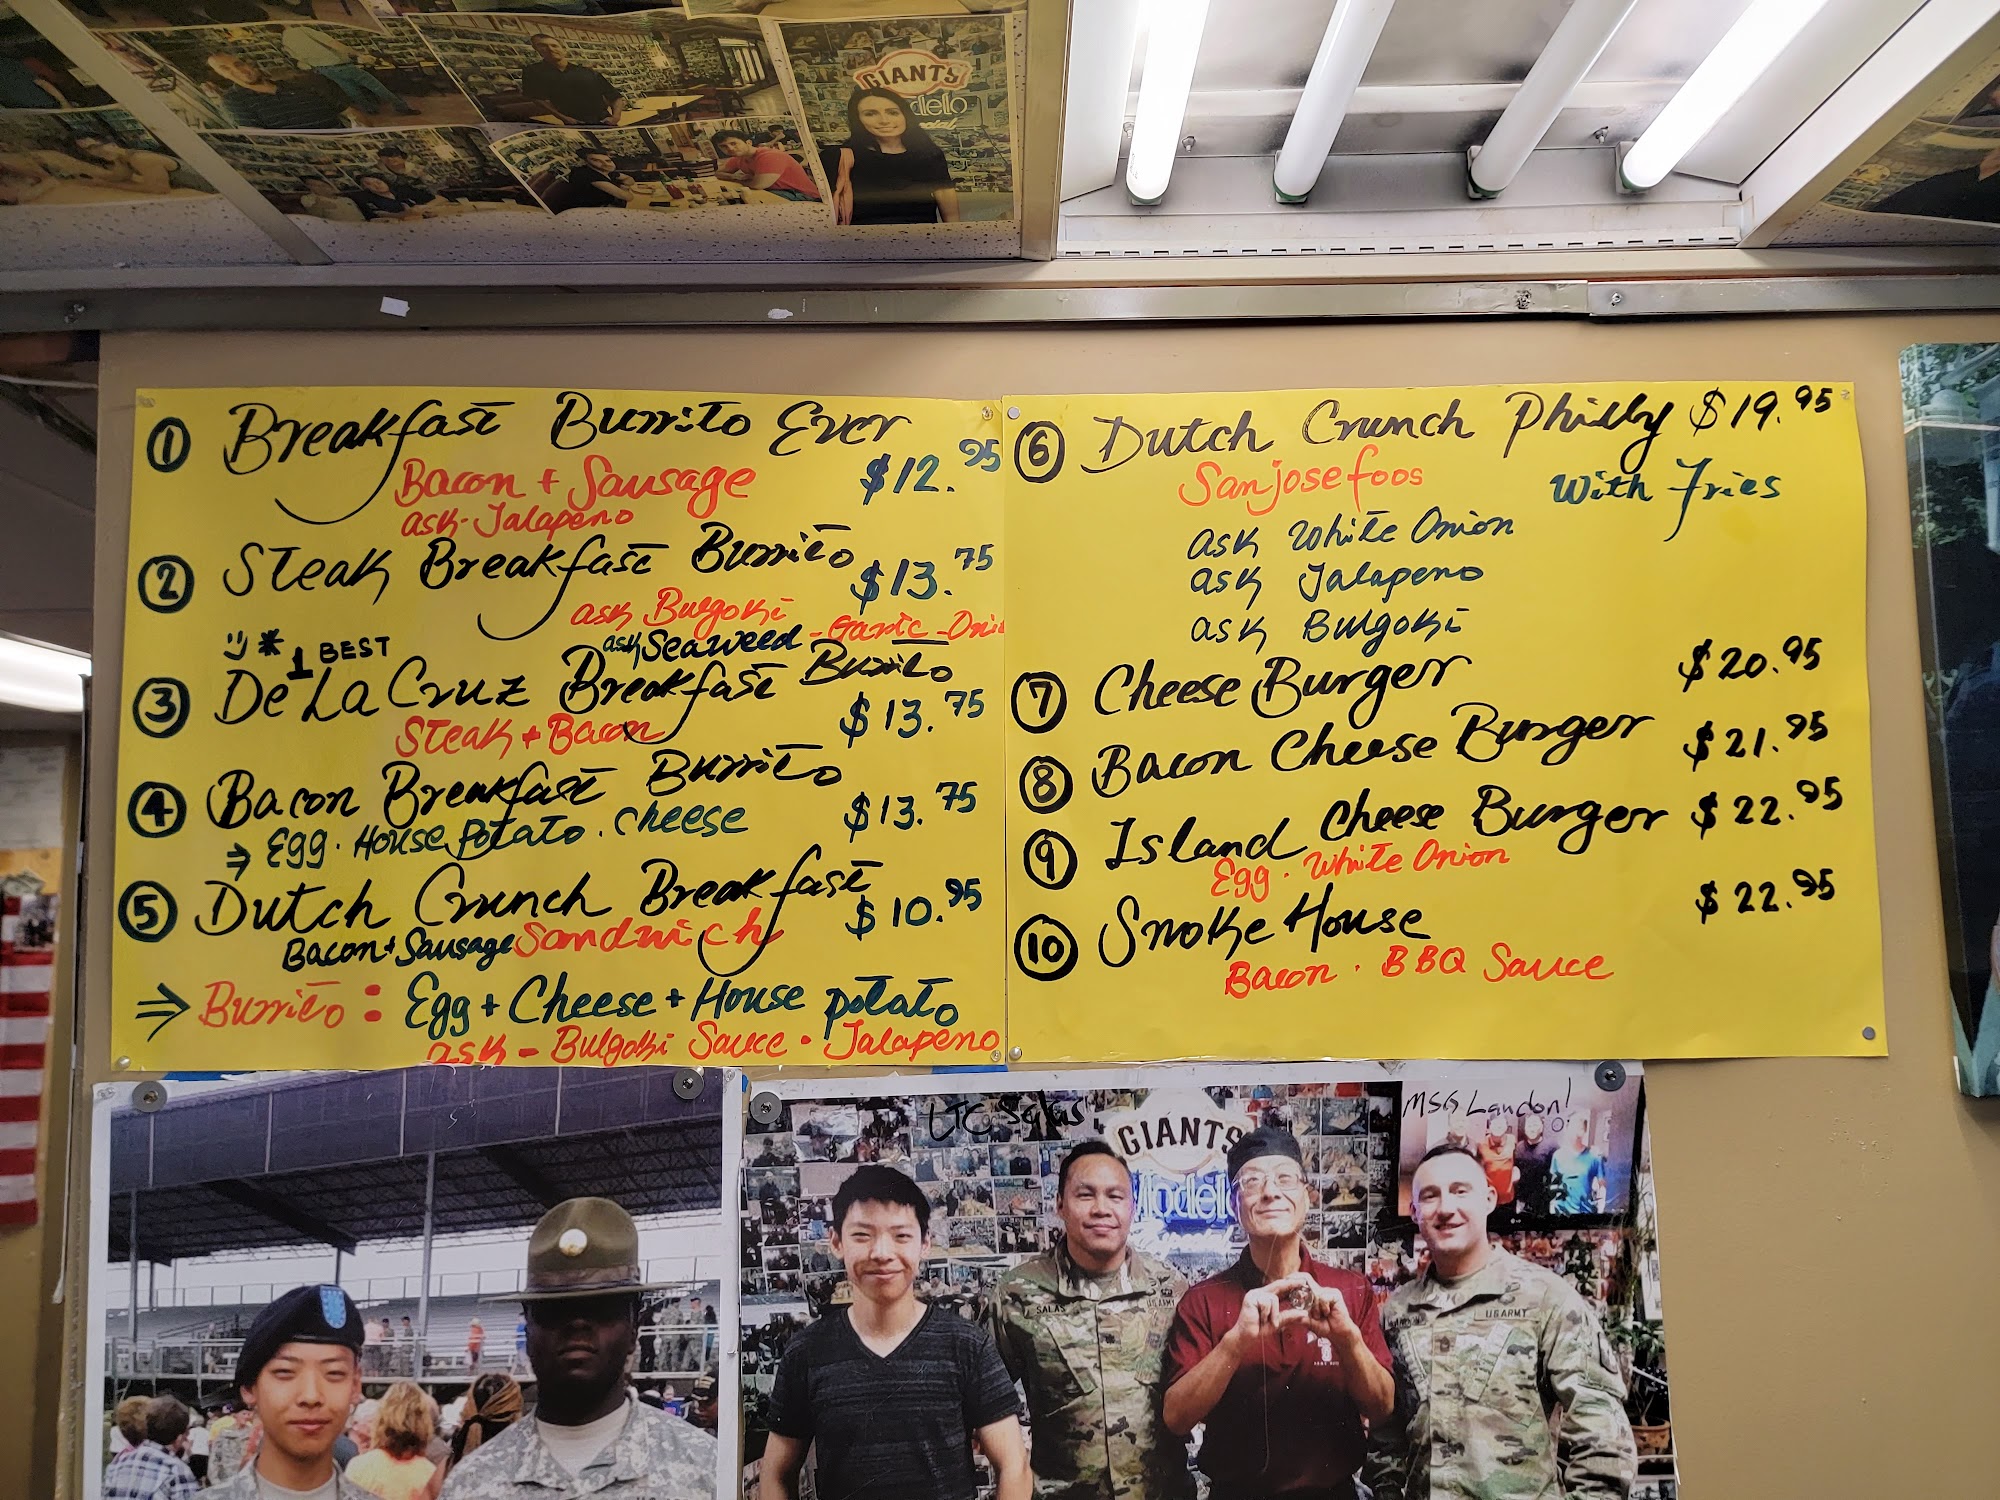 GIANTS
① Breakfast Burrito Ever
$12.95
Bacon + Sausage
ask-Jalapeno
② Steak Breakfast Burrito
$13.75
ask Bulgoki
ask Seaweed - Garlic - Onio
1 BEST
③ De La Cruz Breakfast Burrito
$13.75
Steak + Bacon
④ Bacon Breakfast Burrito
$13.75
⇒ Egg · House potato · cheese
⑤ Dutch Crunch Breakfast
$10.95
Bacon + Sausage Sandwich
⇒ Burrito : Egg + Cheese + House potato
ask - Bulgoki Sauce · Jalapeno
⑥ Dutch Crunch Philly $19.95
Sanjosefoos With Fries
ask White Onion
ask Jalapeno
ask Bulgoki
⑦ Cheese Burger $20.95
⑧ Bacon Cheese Burger $21.95
⑨ Island Cheese Burger $22.95
Egg · White Onion
⑩ Smoke House $22.95
Bacon · BBQ Sauce
LTC Salas
MSG Landon!
GIANTS
SALAS
U.S. ARMY
U.S. ARMY